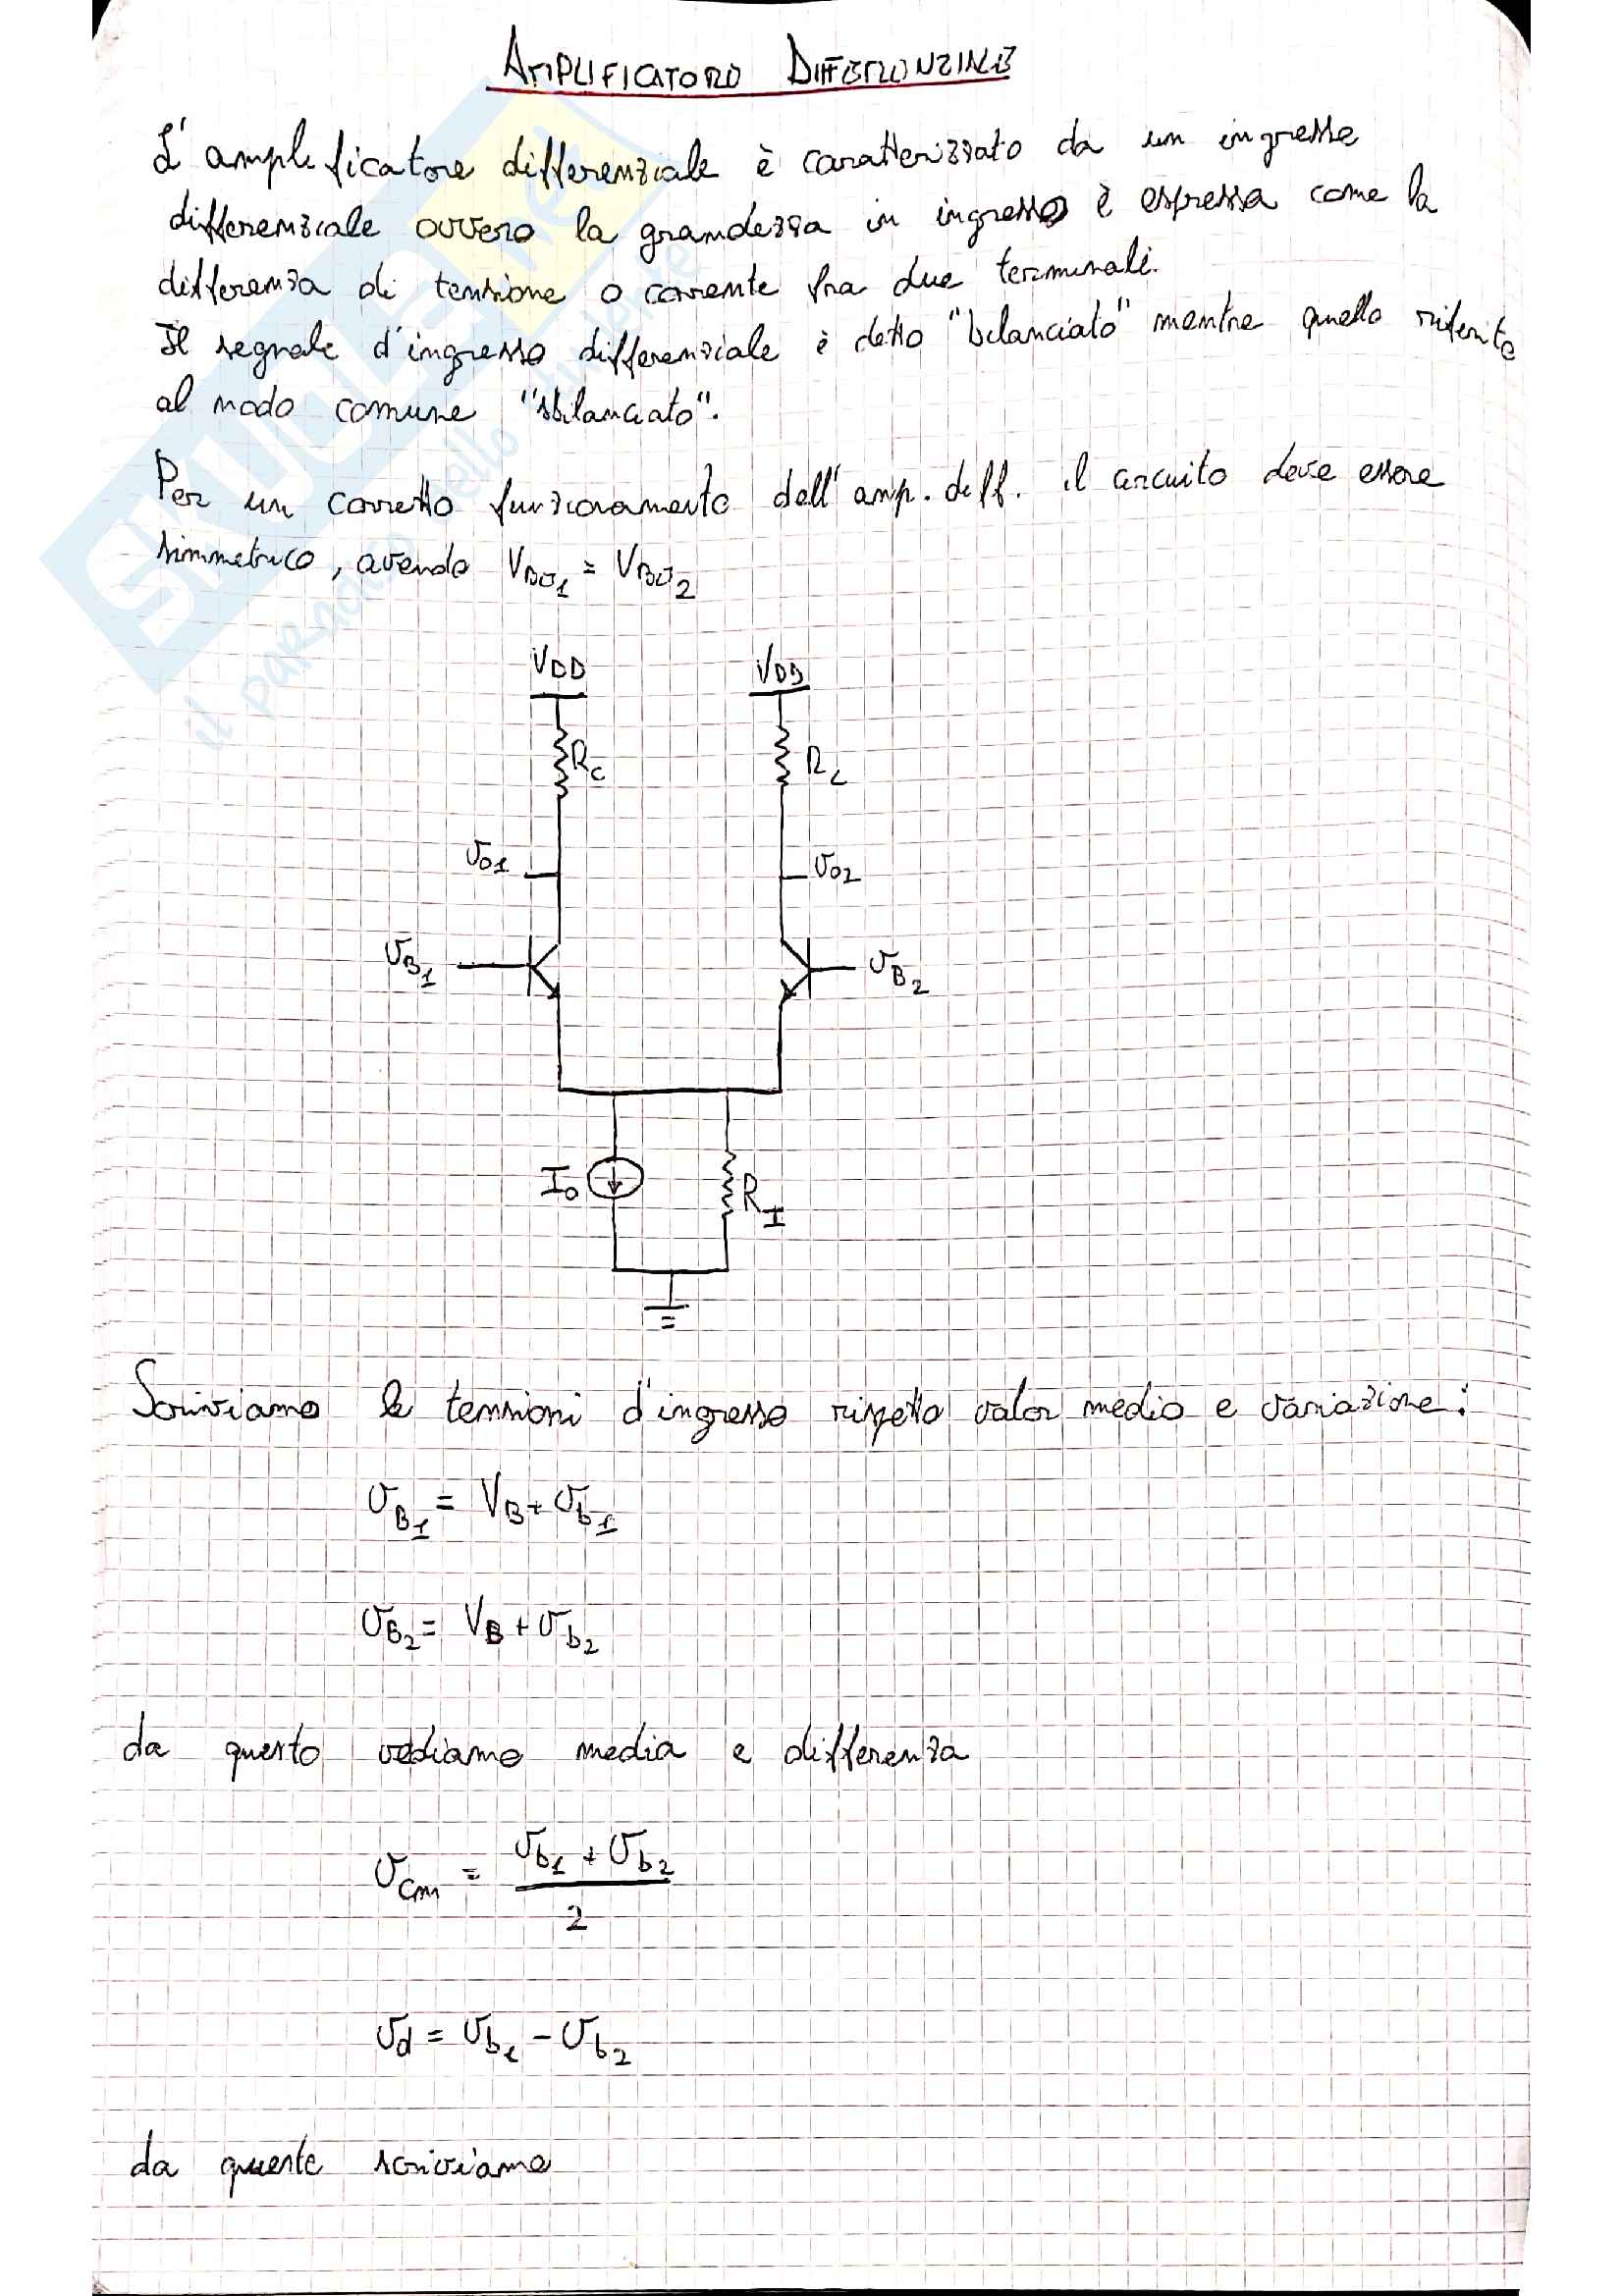 AMPLIFICATORE DIFFERENZIALE
L'amplificatore differenziale è caratterizzato da un ingresso
differenziale ovvero la grandezza in ingresso è espressa come la
differenza di tensione o corrente fra due terminali.
Il segnale d'ingresso differenziale è detto "bilanciato" mentre quello riferito
al modo comune "sbilanciato".
Per un corretto funzionamento dell'amp. diff. il circuito deve essere
simmetrico, avendo V_BE1 = V_BE2
V_DD V_DD
R_C R_C
v_o1 v_o2
v_B1 v_B2
I_o R_I
Scriviamo le tensioni d'ingresso rispetto valor medio e variazione:
v_B1 = V_B + v_b1
v_B2 = V_B + v_b2
da questo vediamo media e differenza
v_cm = (v_b1 + v_b2) / 2
v_d = v_b1 - v_b2
da queste scriviamo
SKUOLA.net
il paradiso dello studente